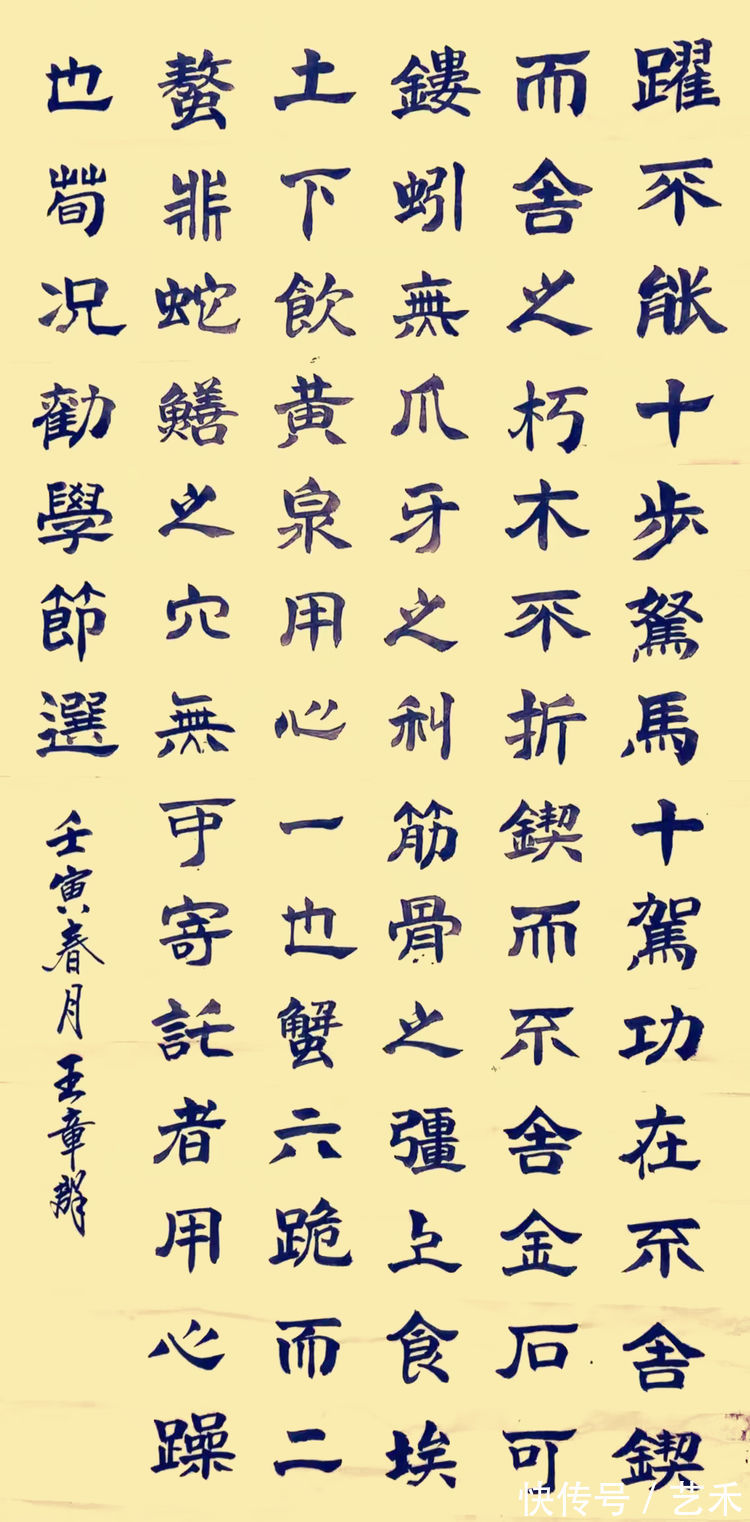 躍不能十步駑馬十駕功在不舍鍥
而舍之朽木不折鍥而不舍金石可
鏤蚓無爪牙之利筋骨之彊上食埃
土下飲黃泉用心一也蟹六跪而二
螯非蛇鱔之穴無可寄託者用心躁
也荀況勸學節選
壬寅春月王章群
快传号 / 艺禾